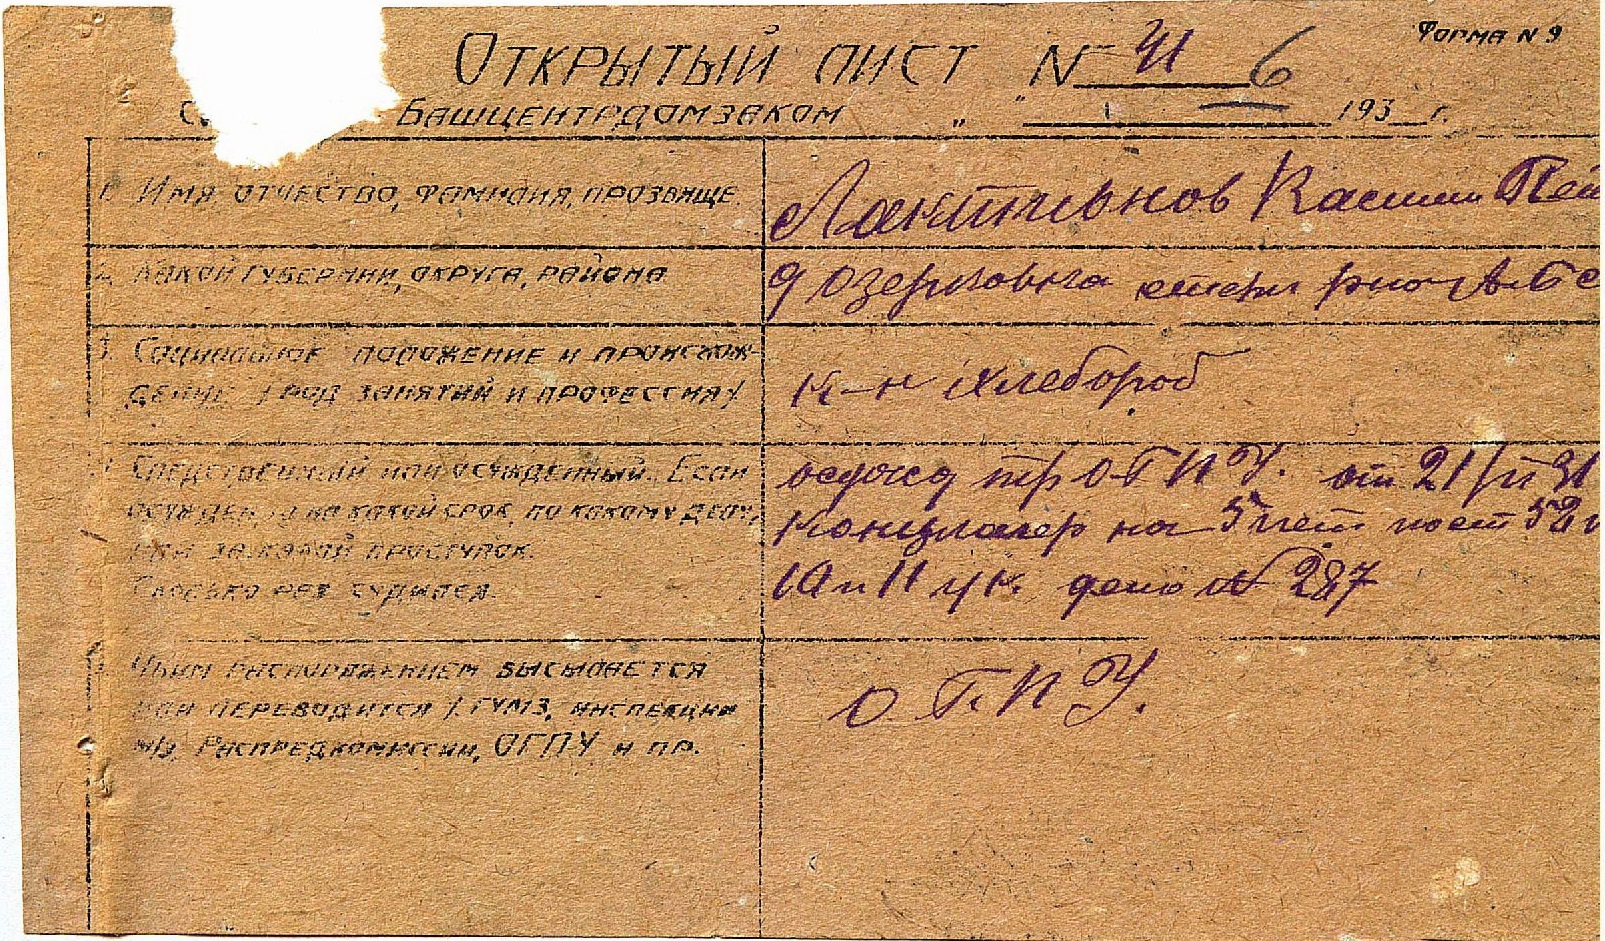 Форма N 9
Открытый лист N 41 6
Башцентрдомзаком „ “ 193 г.
1. Имя отчество, фамилия, прозвище.
Касьян
2. Какой губернии, округа, района
д Озерковка
3. Социальное положение и происхож-
дение /род занятий и профессия/
к-н хлебороб
Следственный или осужденный. Если
осужден, то на какой срок, по какому делу,
или за какой проступок.
Сколько раз судился.
осужд тр ОГПУ. от 21/II 31
концлагер на 5 лет по ст 58
10 и 11 ук дело N 287
Чьим распоряжением высылается
или переводится /ГУМЗ, инспекции
м/з, Распредкомиссии, ОГПУ и пр.
О.Г.П.У.